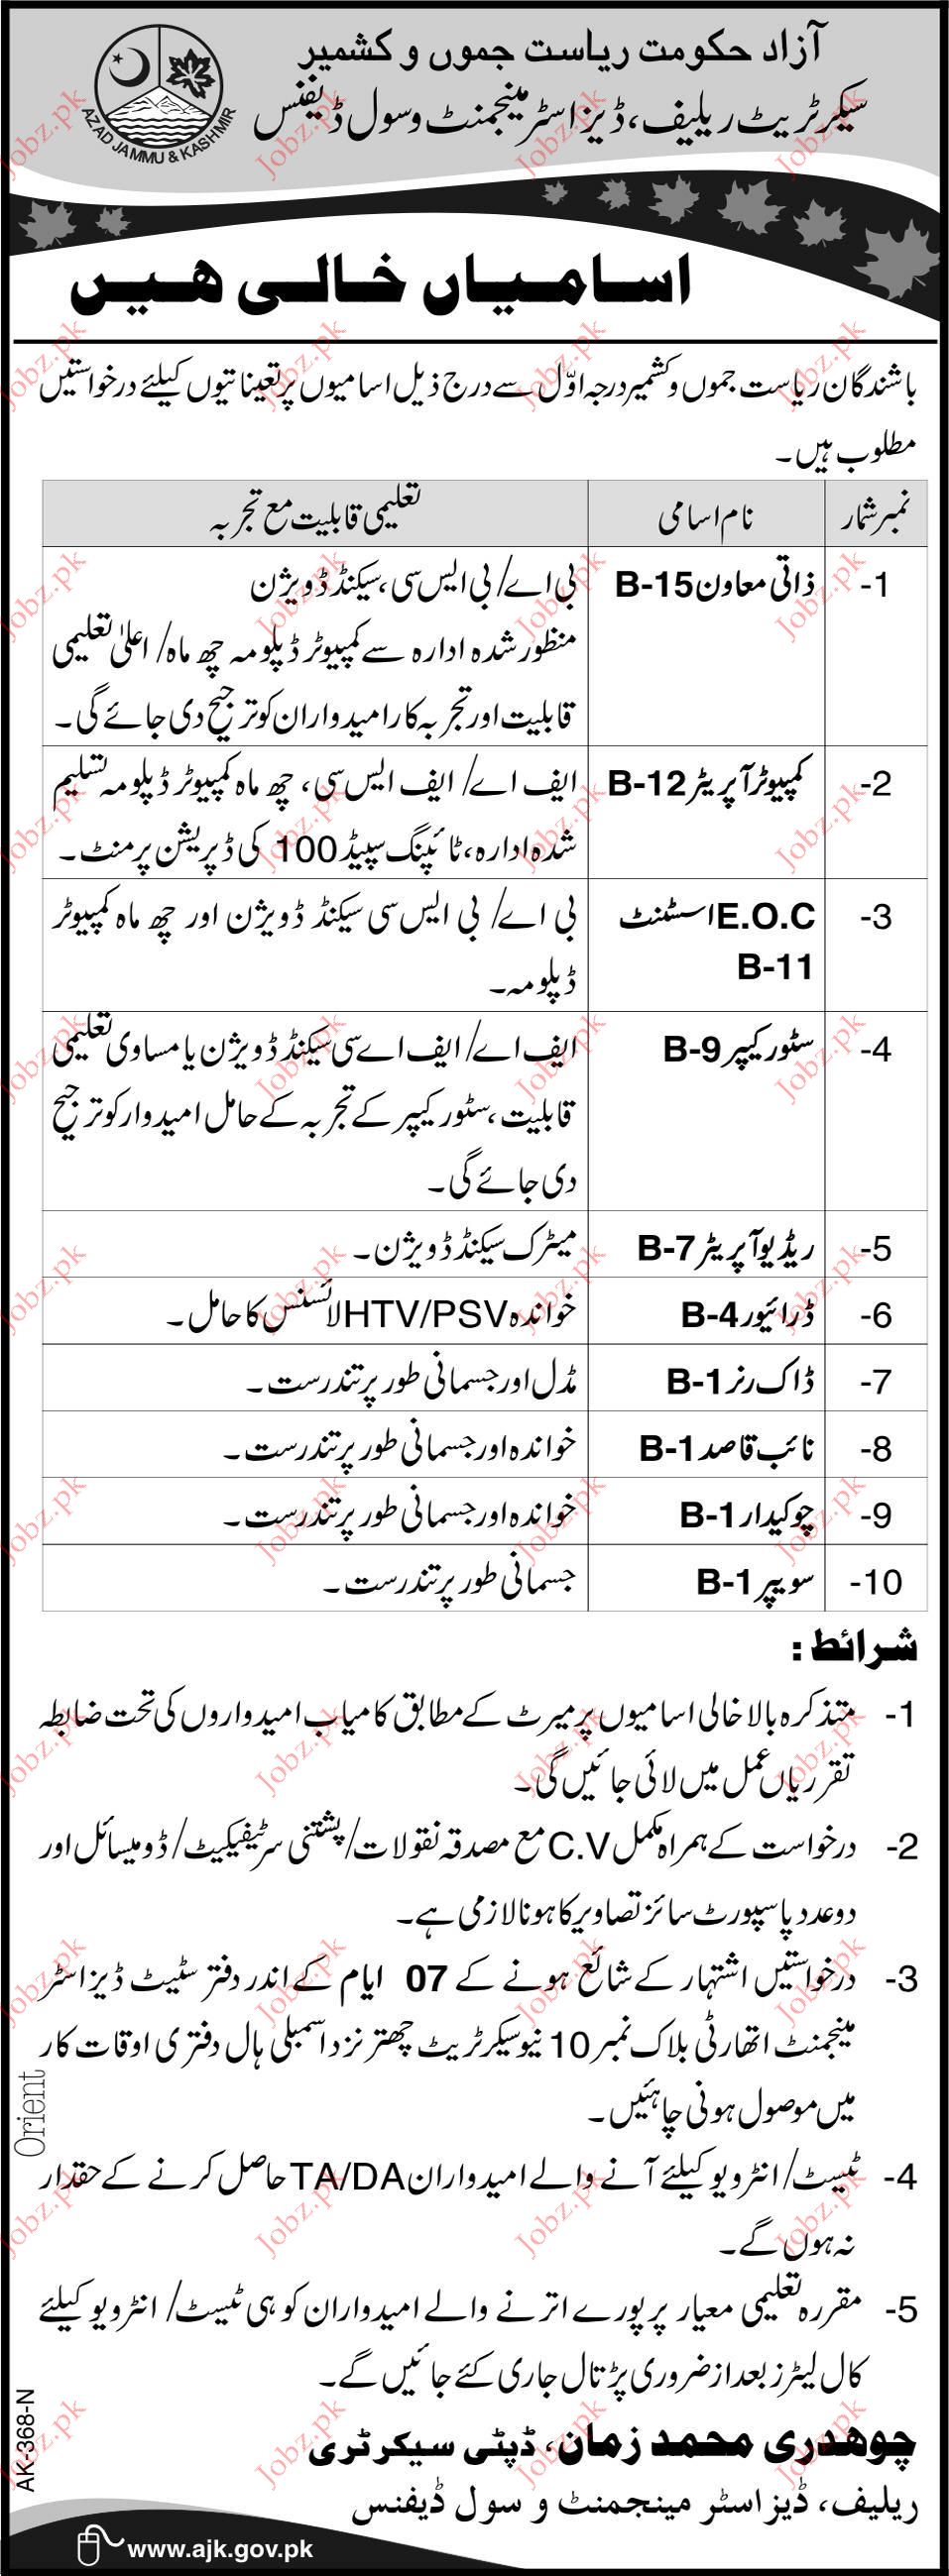 آزاد حکومت ریاست جموں و کشمیر
سیکرٹریٹ ریلیف، ڈیزاسٹر مینجمنٹ و سول ڈیفنس
AZAD JAMMU & KASHMIR
اسامیاں خالی ہیں
باشندگان ریاست جموں وکشمیر درجہ اوّل سے درج ذیل اسامیوں پر تعیناتیوں کیلئے درخواستیں
مطلوب ہیں۔
نمبر شمار نام اسامی تعلیمی قابلیت مع تجربہ
1- ذاتی معاون B-15 بی اے/ بی ایس سی، سیکنڈ ڈویژن
منظور شدہ ادارہ سے کمپیوٹر ڈپلومہ چھ ماہ/ اعلیٰ تعلیمی
قابلیت اور تجربہ کار امیدواران کو ترجیح دی جائے گی۔
2- کمپیوٹر آپریٹر B-12 ایف اے/ ایف ایس سی، چھ ماہ کمپیوٹر ڈپلومہ تسلیم
شدہ ادارہ، ٹائپنگ سپیڈ 100 کی ڈپریشن پر منٹ۔
3- E.O.C اسسٹنٹ بی اے/ بی ایس سی سیکنڈ ڈویژن اور چھ ماہ کمپیوٹر
B-11 ڈپلومہ۔
4- سٹور کیپر B-9 ایف اے/ ایف اے سی سیکنڈ ڈویژن یا مساوی تعلیمی
قابلیت، سٹور کیپر کے تجربہ کے حامل امیدوار کو ترجیح
دی جائے گی۔
5- ریڈیو آپریٹر B-7 میٹرک سیکنڈ ڈویژن۔
6- ڈرائیور B-4 خواندہ HTV/PSV لائسنس کا حامل۔
7- ڈاک رنر B-1 مڈل اور جسمانی طور پر تندرست۔
8- نائب قاصد B-1 خواندہ اور جسمانی طور پر تندرست۔
9- چوکیدار B-1 خواندہ اور جسمانی طور پر تندرست۔
10- سویپر B-1 جسمانی طور پر تندرست۔
شرائط :
1- متذکرہ بالا خالی اسامیوں پر میرٹ کے مطابق کامیاب امیدواروں کی تحت ضابطہ
تقرریاں عمل میں لائی جائیں گی۔
2- درخواست کے ہمراہ مکمل C.V مع مصدقہ نقولات/ پشتنی سرٹیفکیٹ/ ڈومیسائل اور
دو عدد پاسپورٹ سائز تصاویر کا ہونا لازمی ہے۔
3- درخواستیں اشتہار کے شائع ہونے کے 07 ایام کے اندر دفتر سٹیٹ ڈیزاسٹر
مینجمنٹ اتھارٹی بلاک نمبر 10 نیو سیکرٹریٹ چھتر نزد اسمبلی ہال دفتری اوقات کار
میں موصول ہونی چاہئیں۔
4- ٹیسٹ/ انٹرویو کیلئے آنے والے امیدواران TA/DA حاصل کرنے کے حقدار
نہ ہوں گے۔
5- مقررہ تعلیمی معیار پر پورے اترنے والے امیدواران کو ہی ٹیسٹ/ انٹرویو کیلئے
کال لیٹرز بعد از ضروری پڑتال جاری کئے جائیں گے۔
چوھدری محمد زمان، ڈپٹی سیکرٹری
ریلیف، ڈیزاسٹر مینجمنٹ و سول ڈیفنس
www.ajk.gov.pk
Orient
AK-368-N
Jobz.pk